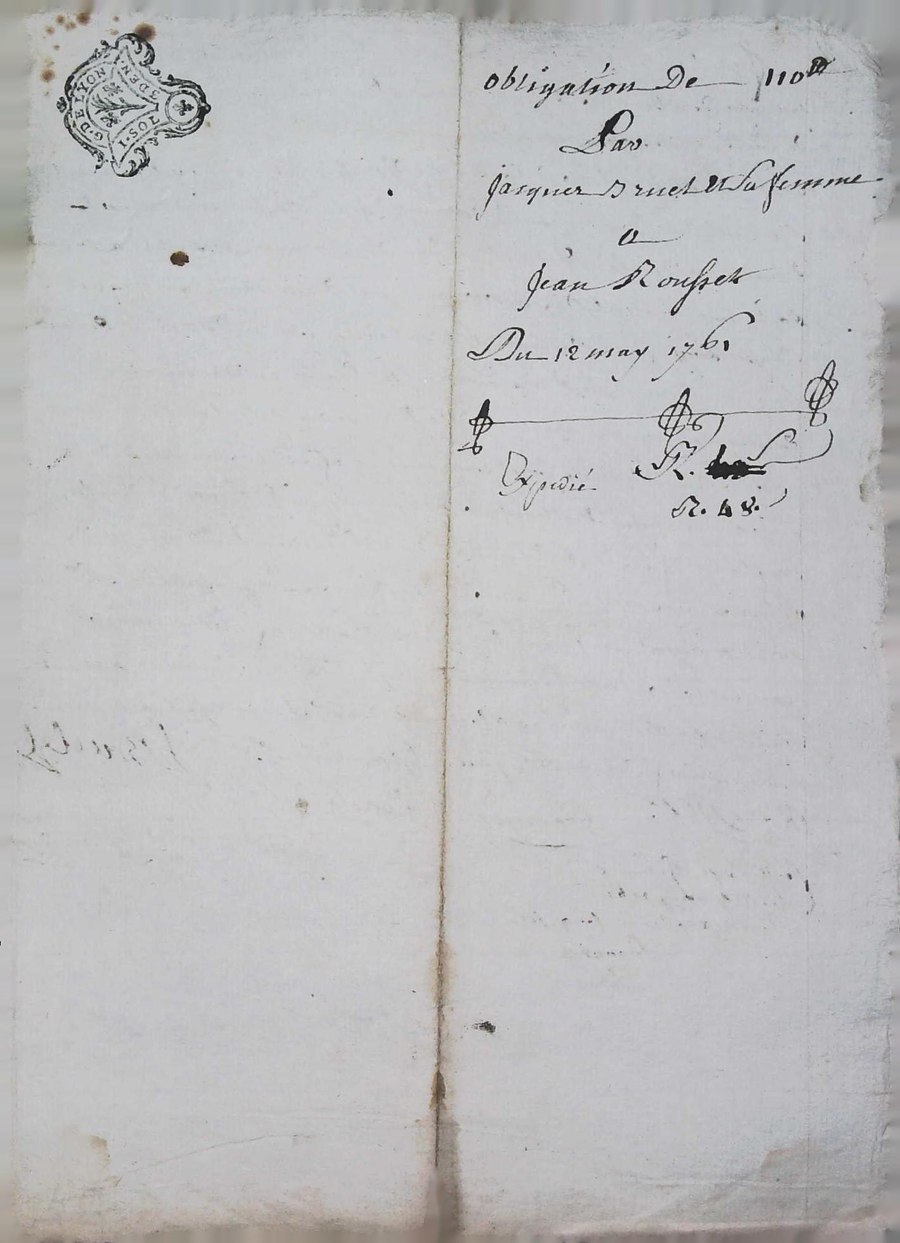 G. DE LYON
I. SOL
3 DEN.
obligation De 110#
Par
Jacques Bruet Et Sa femme
a
Jean Rousset
Du 12 may 1761
Expedié
R.
R. 48.